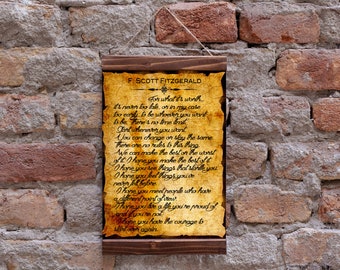 F. Scott Fitzgerald
For what it's worth,
it's never too late, or in my case
too early, to be whoever you want
to be. There's no time limit.
Start whenever you want.
You can change or stay the same.
There are no rules to this thing.
We can make the best or the worst
of it. I hope you make the best of it.
I hope you see things that startle you.
I hope you feel things you've
never felt before.
I hope you meet people who have
a different point of view.
I hope you live a life you're proud of
and if you're not,
I hope you have the courage to
start over again.